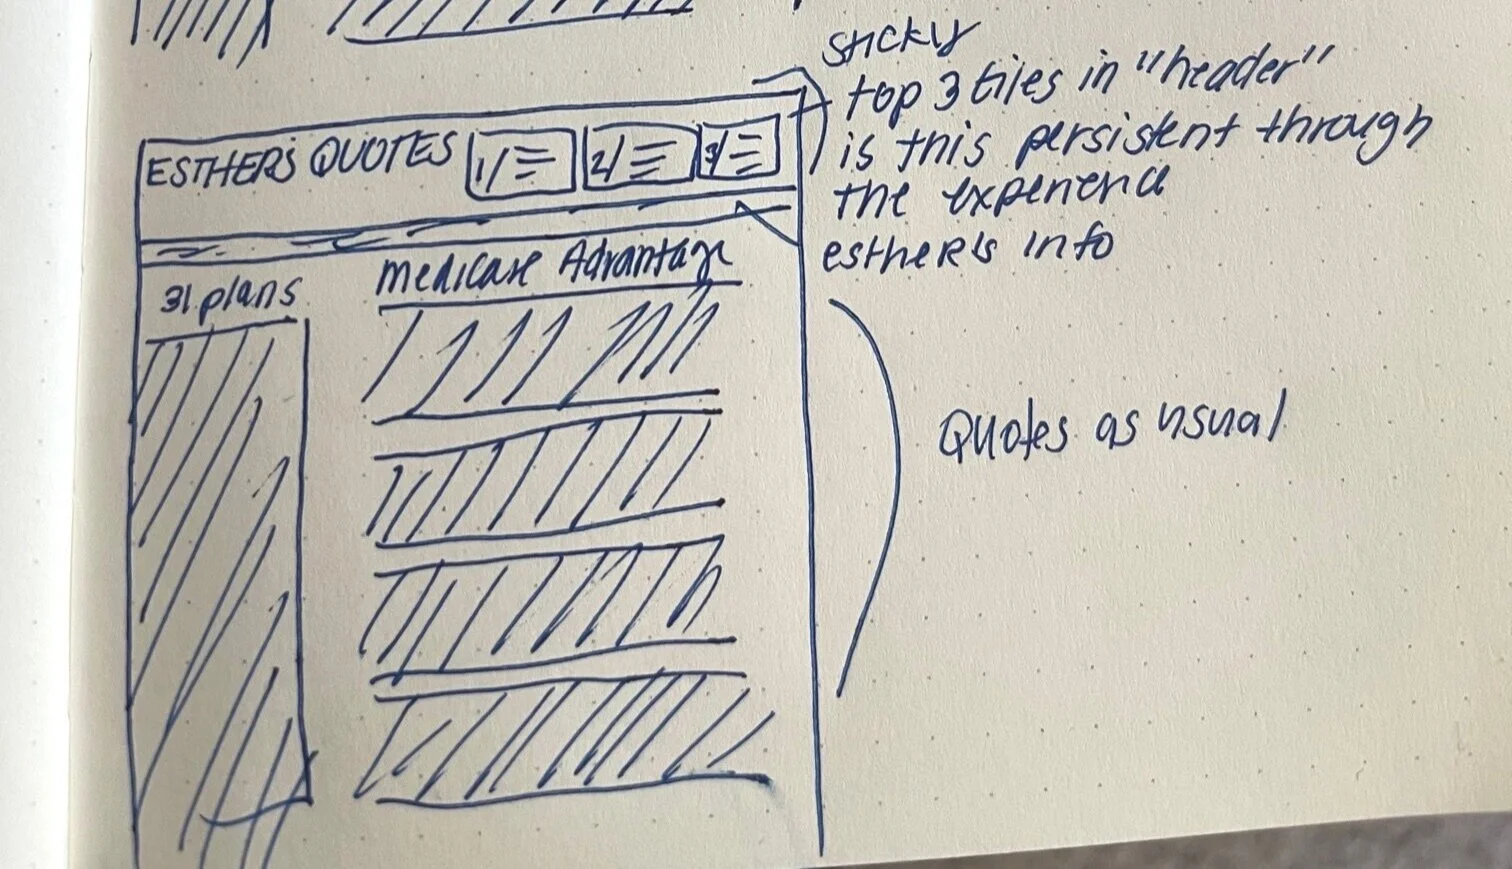 sticky
top 3 tiles in "header"
is this persistent through
the experience
esther's info
ESTHER'S QUOTES 1/ 2/ 3/
31 plans
Medicare Advantage
Quotes as usual